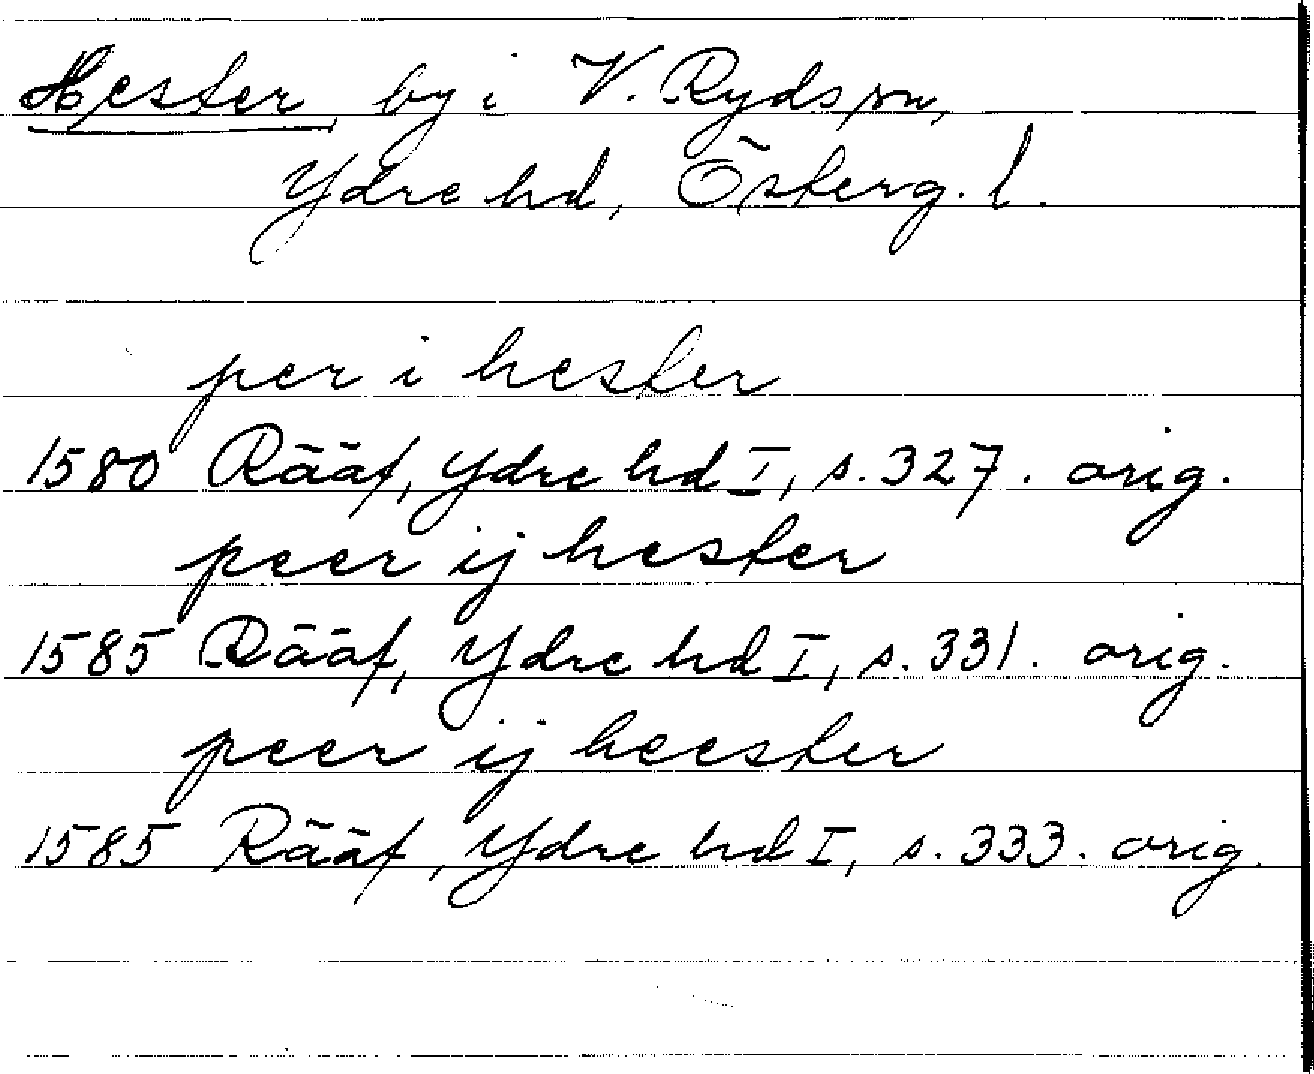 Hester by i V. Ryds sn,
Ydre hd, Österg. l.
per i hester
1580 Rääf, Ydre hd I, s. 327. orig.
peer ij hester
1585 Rääf, Ydre hd I, s. 331. orig.
peer ij heester
1585 Rääf, Ydre hd I, s. 333. orig.